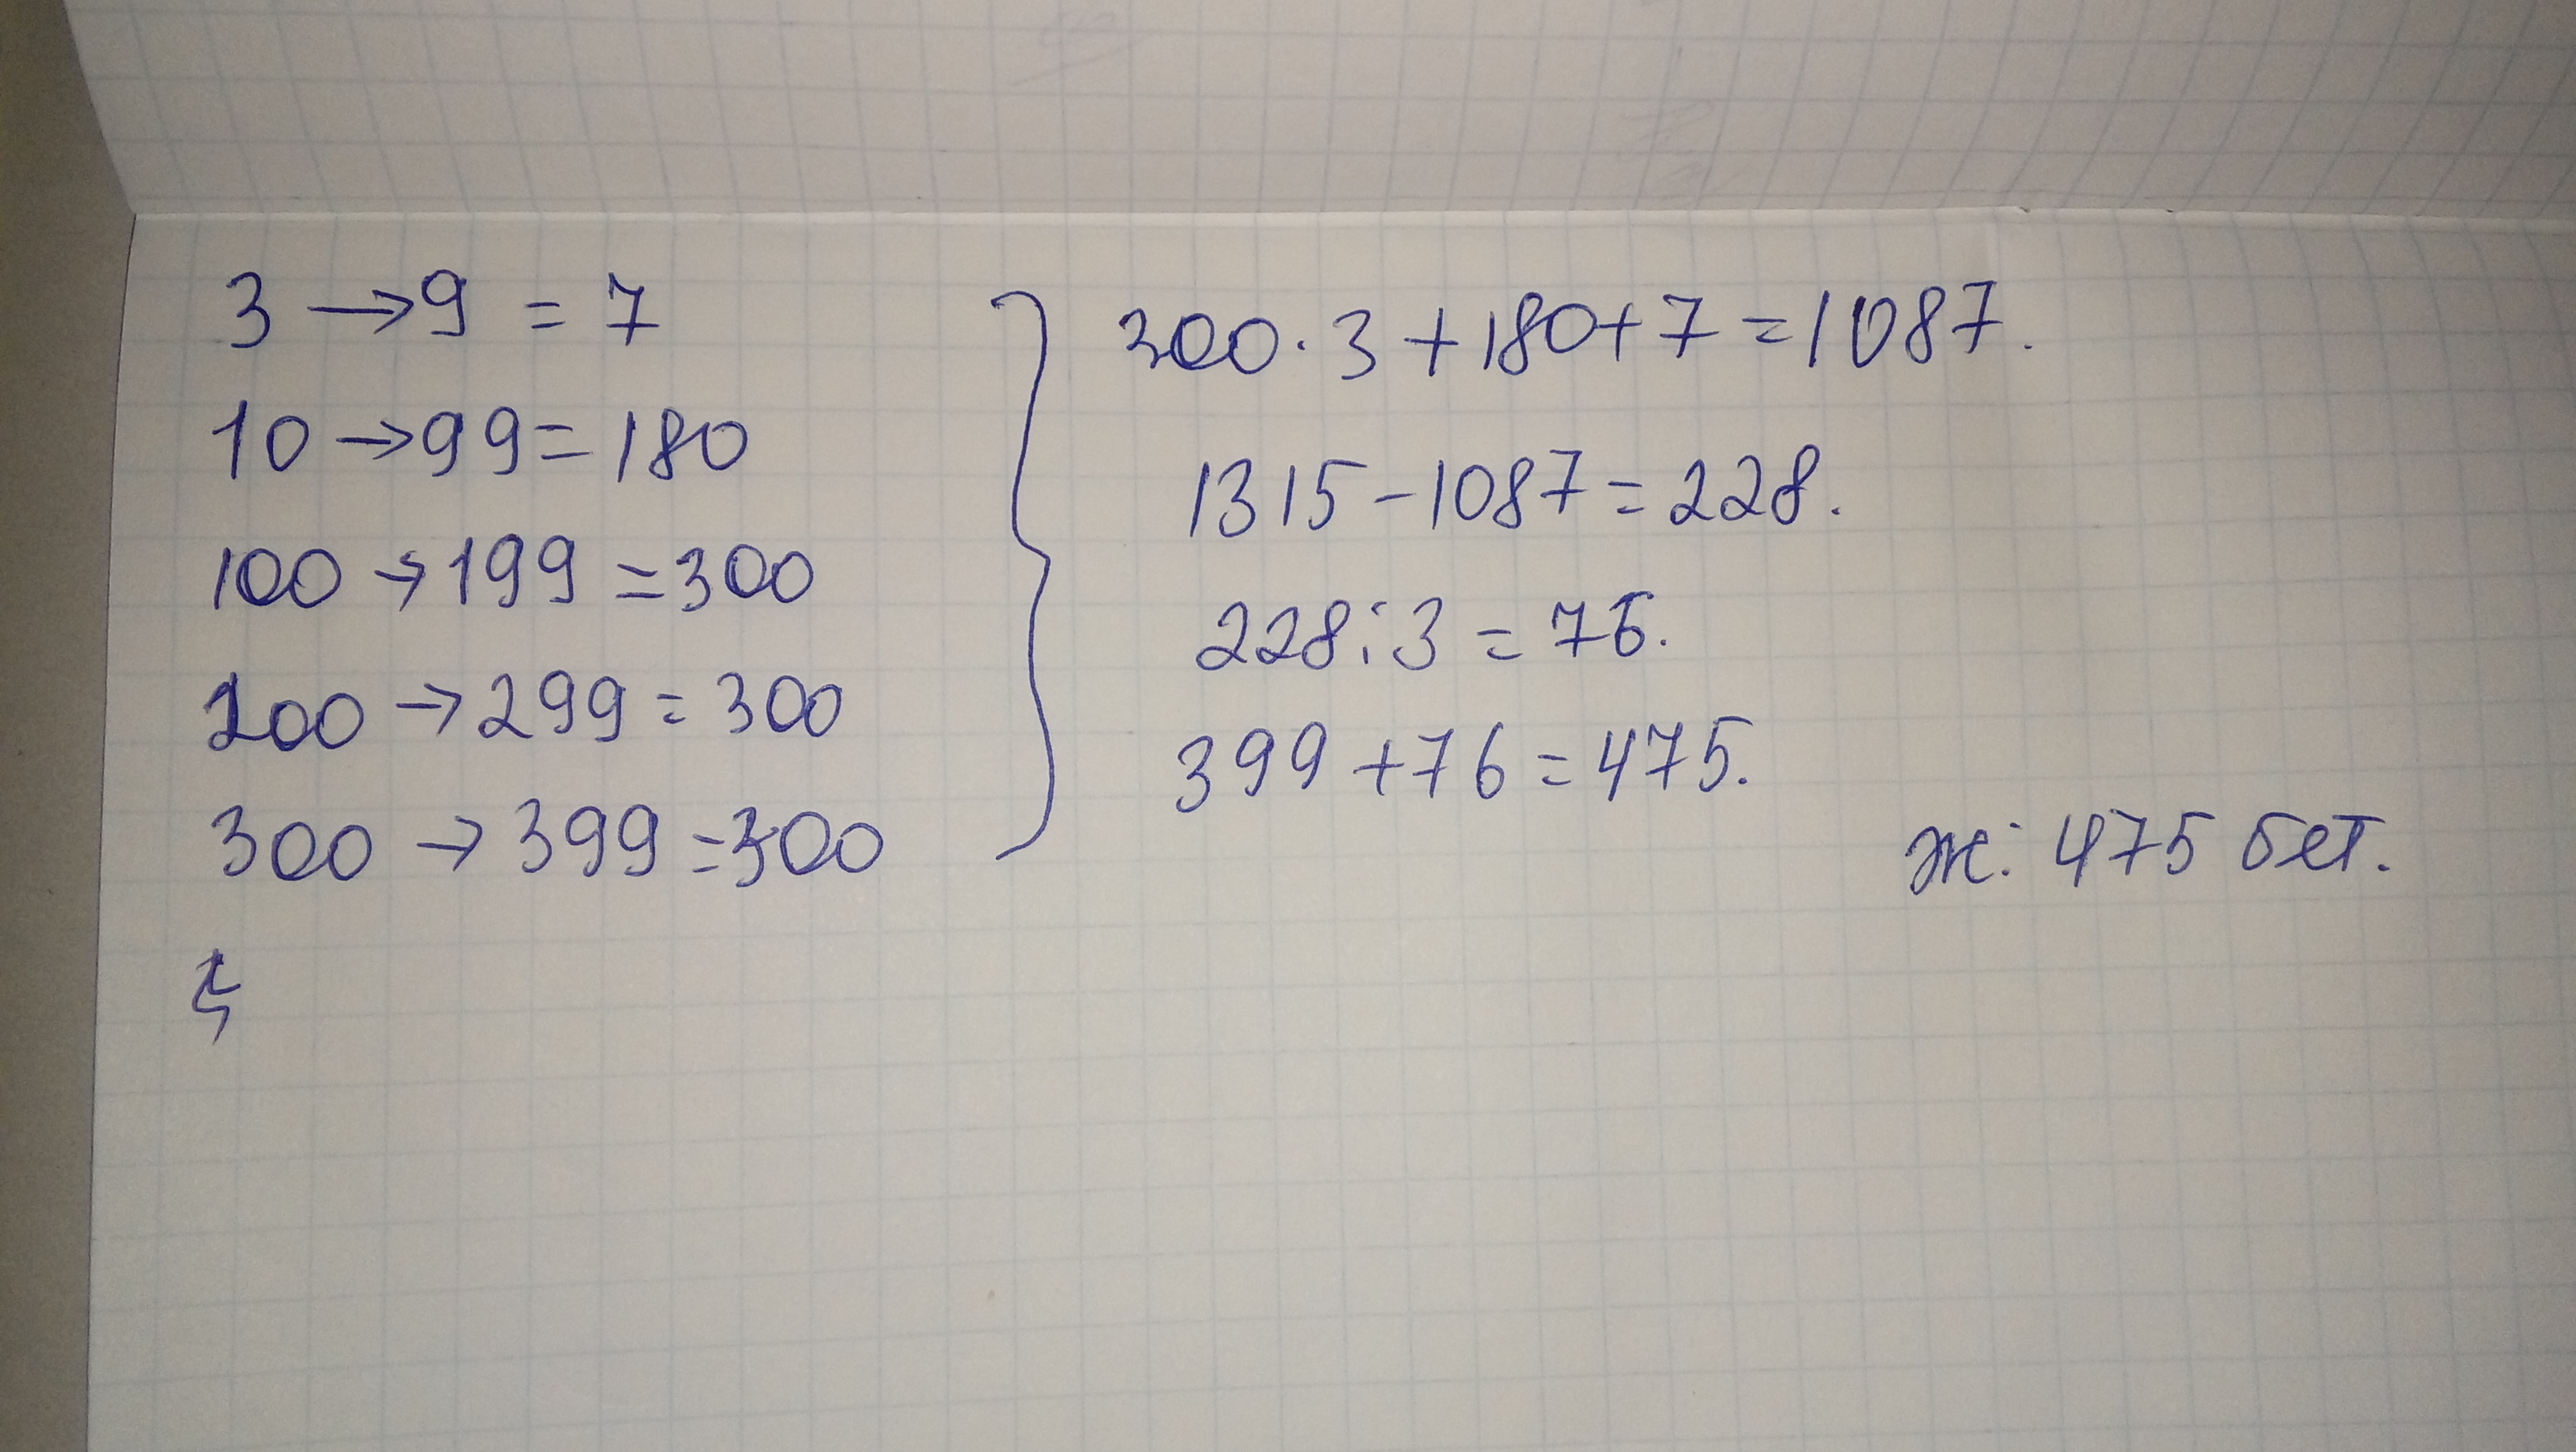 3 → 9 = 7
10 → 99 = 180
100 → 199 = 300
200 → 299 = 300
300 → 399 = 300
300 · 3 + 180 + 7 = 1087.
1315 - 1087 = 228.
228 : 3 = 76.
399 + 76 = 475.
Ж: 475 бет.